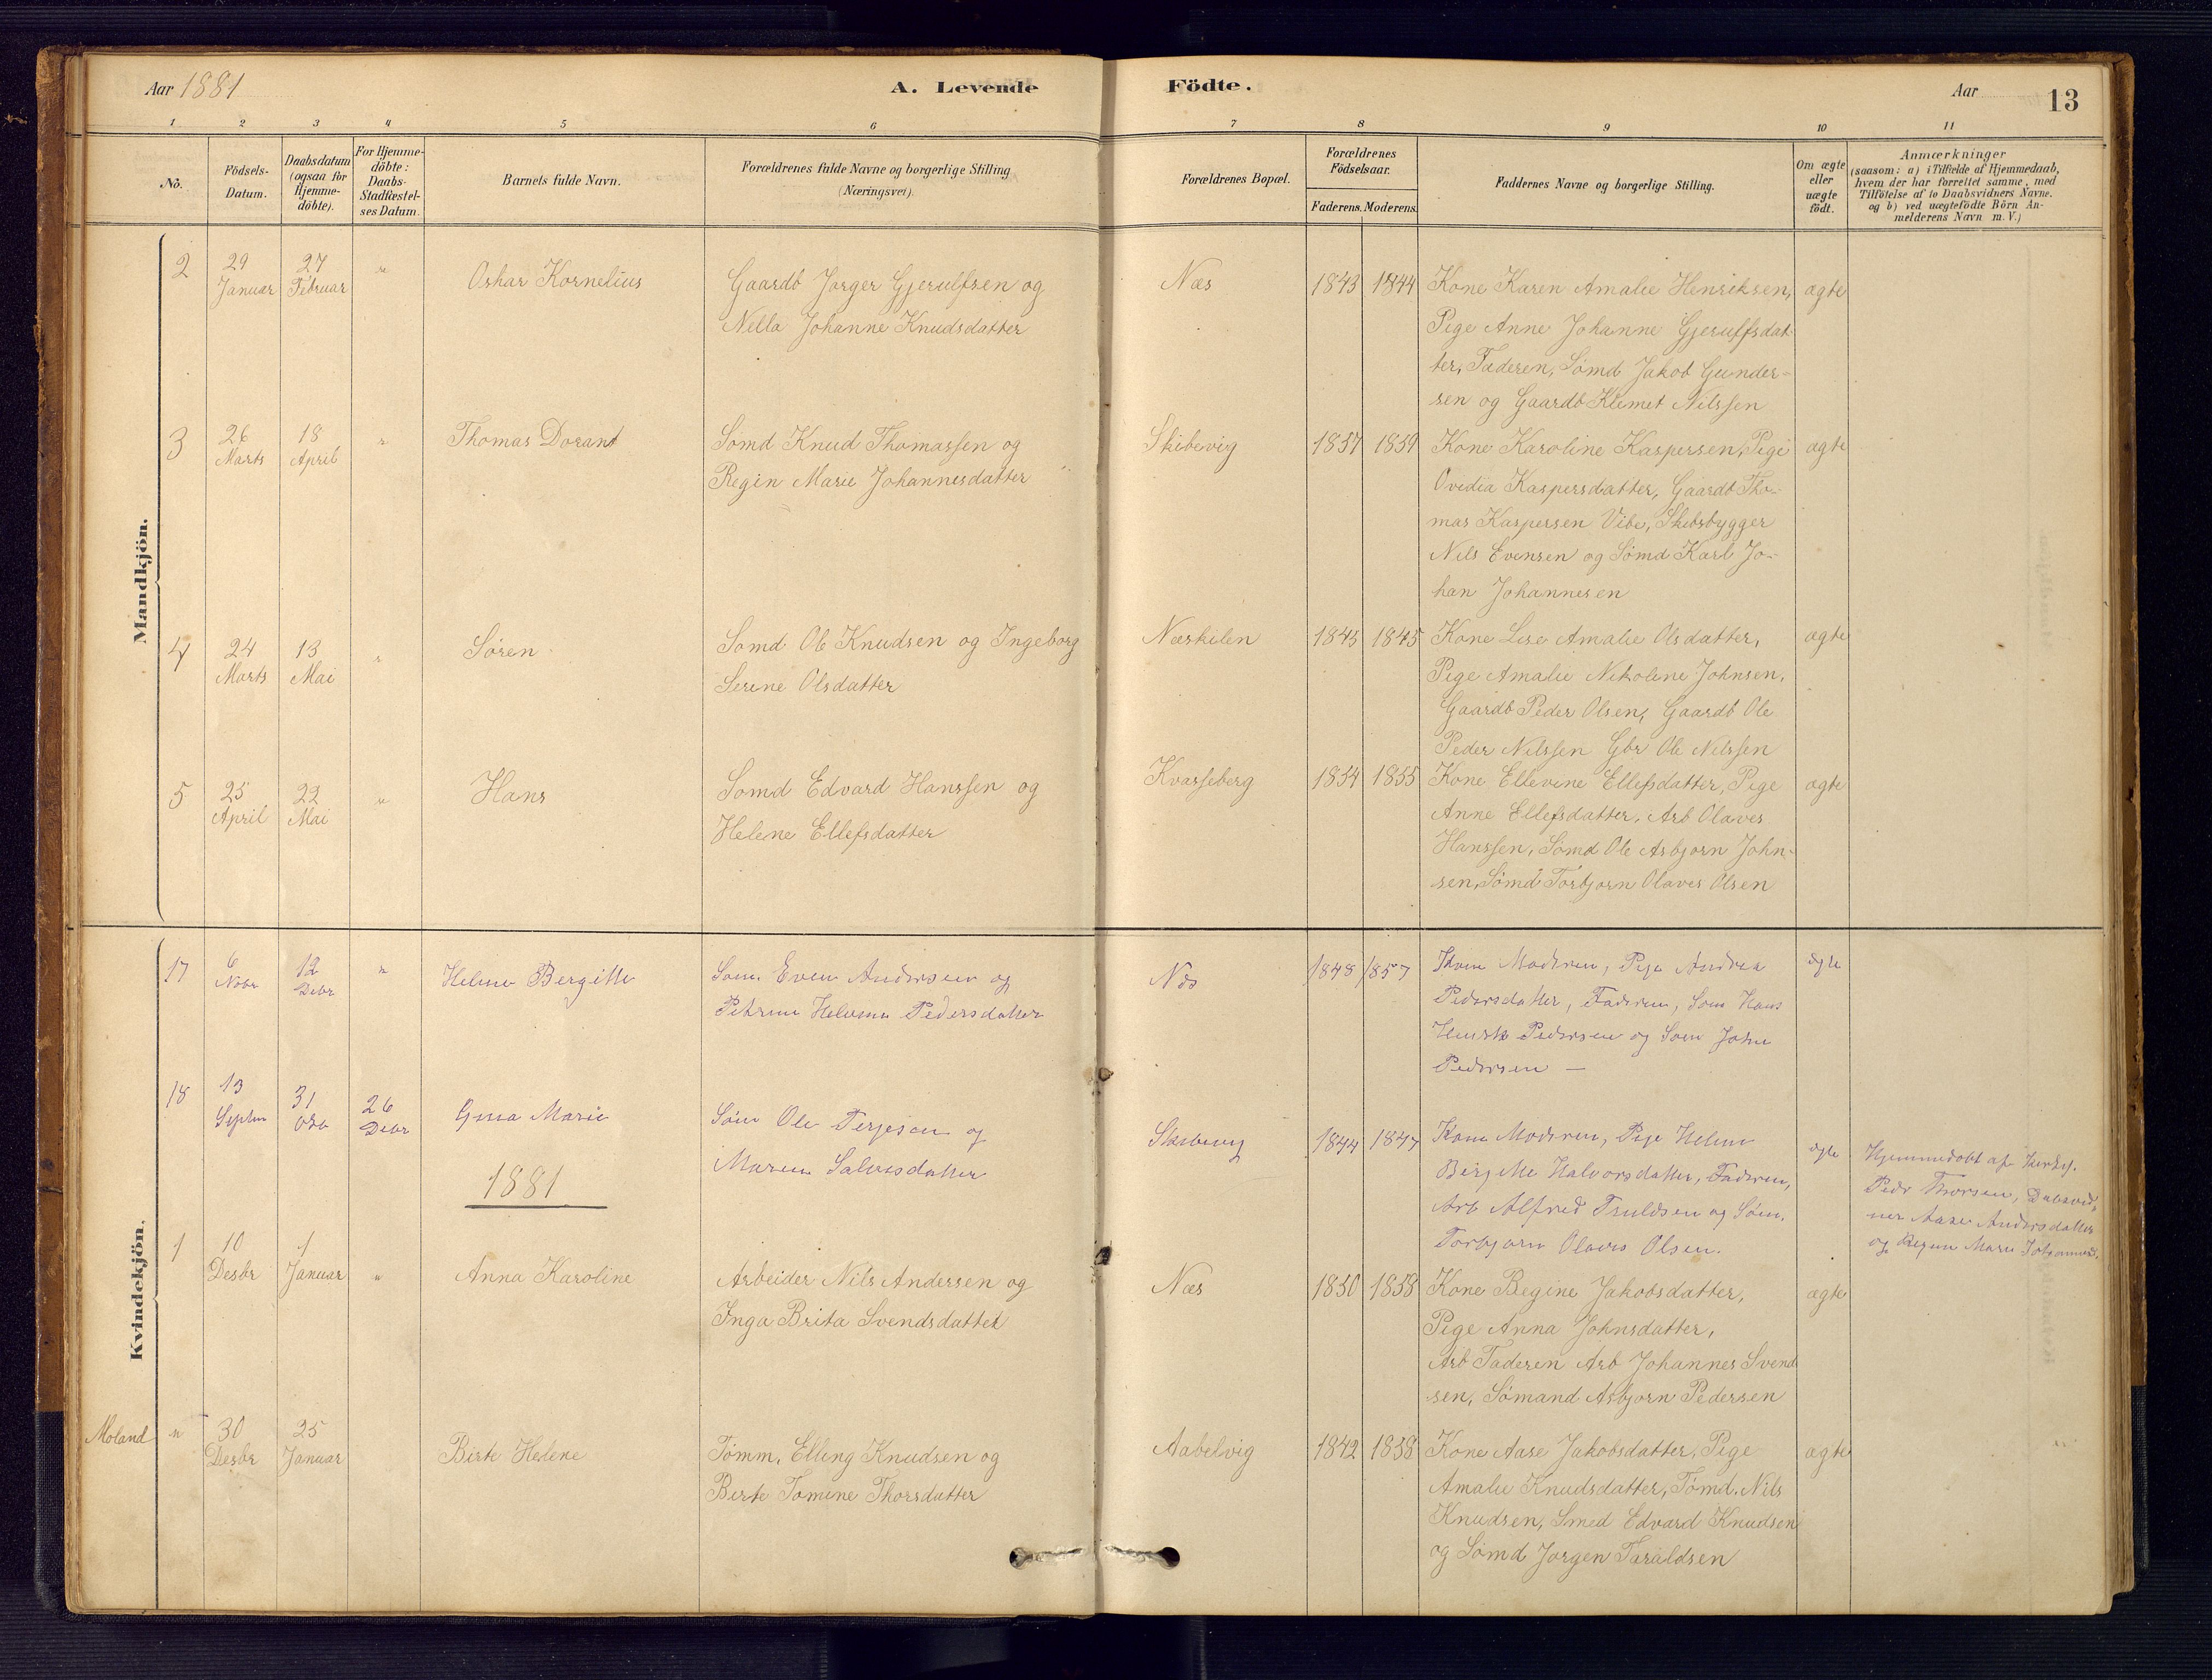 Aar 1881
A. Levende
Födte.
Aar
13
1 2 3 4 5 6 7 8 9 10 11
No.
Födsels-
Datum.
Daabsdatum
(ogsaa for
Hjemme-
döbte).
For Hjemme-
döbte:
Daabs-
Stadfæstel-
ses Datum.
Barnets fulde Navn.
Forældrenes fulde Navne og borgerlige Stilling
(Næringsvei).
Forældrenes Bopæl.
Forældrenes
Födselsaar.
Faderens. Moderens.
Faddernes Navne og borgerlige Stilling.
Om ægte
eller
uægte
födt.
Anmærkninger
(saasom: a) i Tilfælde af Hjemmedaab,
hvem der har forrettet samme, med
Tilföielse af to Daabsvidners Navne.
og b) ved uægtefödte Börn An-
melderens Navn m. V.)
Mandkjön.
2
29
Januar
27
Februar
"
Oskar Kornelius
Gaardb Jørger Gjerulfsen og
Nella Johanne Knudsdatter
Næs
1843 1844
Kone Karen Amalie Henriksen,
Pige Anne Johanne Gjerulfsdat-
ter, Faderen, Sømd Jakob Gunder-
sen og Gaardb Klemet Nilssen
ægte
3
26
Marts
18
April
"
Thomas Dorant
Sømd Knud Thomassen og
Regin Marie Johannesdatter
Skibevig
1857 1859
Kone Karoline Kaspersen, Pige
Ovedia Kaspersdatter, Gaardb Tho-
mas Kaspersen Vibe, Skibsbygger
Nils Evensen og Sømd Karl Jo-
han Johannesen
ægte
4
24
Marts
13
Mai
"
Søren
Somd Ole Knudsen og Ingeborg
Serine Olsdatter
Næskilen
1845 1845
Kone Lise Amalie Olsdatter,
Pige Amalie Nikoline Johnsen,
Gaardb Peder Olsen, Gaardb Ole
Peder Nilssen Gbr Ole Nilssen
ægte
5
25
April
22
Mai
"
Hans
Somd Edvard Hanssen og
Helene Ellefsdatter
Kvasseberg
1854 1855
Kone Ellevine Ellefsdatter, Pige
Anne Ellefsdatter, Arb Olaves
Hanssen, Sømd Ole Asbjørn John-
sen, Sømd Torbjørn Olaves Olsen
ægte
Kvindekjön.
17
6
Nobr
12
Debr
"
Helene Bergitte
Søm. Even Andersen og
Petrine Helvine Pedersdatter
Næs
1848 1857
Kone Moderen, Pige Andrea
Pedersdatter, Faderen, Søm Hans
Henrik Pedersen og Søm John
Pedersen —
ægte
18
13
Septbr
31
Otb
26
Debr
Gina Marie
Søm Ole Terjesen og
Maren Salvesdatter
1844 1847
Kone Moderen, Pige Helene
Birgitte Halvorsdatter, Faderen,
Arb Alfred Truldsen og Søm.
Torbjørn Olaves Olsen.
ægte
Hjemmedøbt af
Peder Thorsen, Daabsvid-
ner Aase Andersdatter
og Regine Marie Johannesd.
1881
1
10
Desbr
1
Januar
"
Anna Karoline
Arbeider Nils Andersen og
Inga Brita Svendsdatter
Næs
1850 1858
Kone Regine Jakobsdatter,
Pige Anna Johnsdatter,
Arb Faderen Arb Johannes Svend
sen, Sømand Asbjørn Pedersen
ægte
Moland
"
30
Desbr
25
Januar
Birte Helene
Tømm. Elling Knudsen og
Berte Tomine Thorsdatter
Aabelvig
1842 1858
Kone Aase Jakobsdatter, Pige
Amalie Knudsdatter, Tømd. Nils
Knudsen, Smed Edvard Knudsen
og Sømd Jørgen Taraldsen
ægte